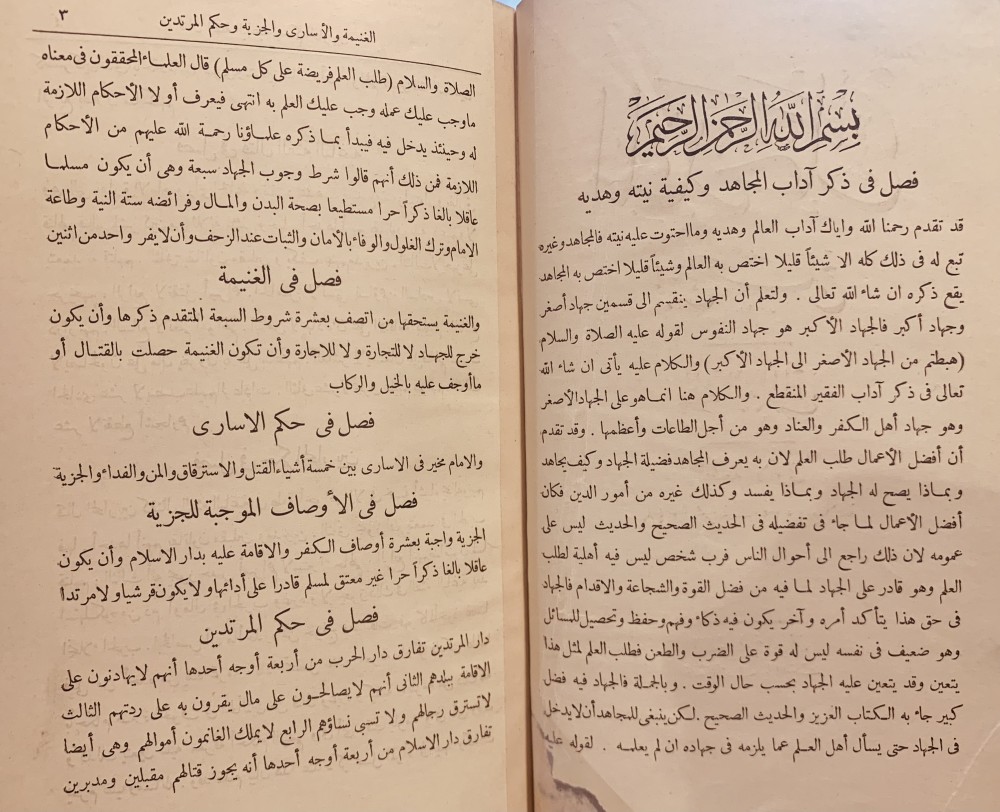 بسم الله الرحمن الرحيم
فصل فى ذكر آداب المجاهد وكيفية نيته وهديه
قد تقدم رحمنا الله واياك آداب العالم وهديه وما احتوت عليه نيته فالمجاهد وغيره
تبع له فى ذلك كله الا شيئاً قليلا اختص به العالم وشيئاً قليلا اختص به المجاهد
يقع ذكره ان شاء الله تعالى . ولتعلم أن الجهاد ينقسم الى قسمين جهاد أصغر
وجهاد أكبر فالجهاد الأكبر هو جهاد النفوس لقوله عليه الصلاة والسلام
(هبطتم من الجهاد الأصغر الى الجهاد الأكبر) والكلام عليه يأتى ان شاء الله
تعالى فى ذكر آداب الفقير المنقطع . والكلام هنا انما هو على الجهاد الأصغر
وهو جهاد أهل الكفر والعناد وهو من أجل الطاعات وأعظمها . وقد تقدم
أن أفضل الأعمال طلب العلم لان به يعرف المجاهد فضيلة الجهاد وكيف يجاهد
وبماذا يصح له الجهاد وبماذا يفسد وكذلك غيره من أمور الدين فكان
أفضل الأعمال لما جاء فى تفضيله فى الحديث الصحيح والحديث ليس على
عمومه لان ذلك راجع الى أحوال الناس فرب شخص ليس فيه أهلية لطلب
العلم وهو قادر على الجهاد لما فيه من فضل القوة والشجاعة والاقدام فالجهاد
فى حق هذا يتأكد أمره وآخر يكون فيه ذكاء وفهم وحفظ وتحصيل للمسائل
وهو ضعيف فى نفسه ليس له قوة على الضرب والطعن فطلب العلم لمثل هذا
يتعين وقد يتعين عليه الجهاد بحسب حال الوقت . وبالجملة فالجهاد فيه فضل
كبير جاء به الكتاب العزيز والحديث الصحيح . لكن ينبغى للمجاهد أن لا يدخل
فى الجهاد حتى يسأل أهل العلم عما يلزمه فى جهاده ان لم يعلمه . لقوله عليه
الغنيمة والأسارى والجزية وحكم المرتدين ٣
الصلاة والسلام (طلب العلم فريضة على كل مسلم) قال العلماء المحققون فى معناه
ماوجب عليك عمله وجب عليك العلم به انتهى فيعرف أو لا الأحكام اللازمة
له وحينئذ يدخل فيه فيبدأ بما ذكره علماؤنا رحمة الله عليهم من الأحكام
اللازمة فمن ذلك أنهم قالوا شرط وجوب الجهاد سبعة وهى أن يكون مسلما
عاقلا بالغا ذكراً حرا مستطيعا بصحة البدن والمال وفرائضه ستة النية وطاعة
الامام وترك الغلول والوفاء بالأمان والثبات عند الزحف وأن لا يفر واحد من اثنين
فصل فى الغنيمة
والغنيمة يستحقها من اتصف بعشرة شروط السبعة المتقدم ذكرها وأن يكون
خرج للجهاد لا للتجارة و لا للاجارة وأن تكون الغنيمة حصلت بالقتال أو
ما أوجف عليه بالخيل والركاب
فصل فى حكم الاسارى
والامام مخير فى الاسارى بين خمسة أشياء القتل والاسترقاق والمن والفداء والجزية
فصل فى الأوصاف الموجبة للجزية
الجزية واجبة بعشرة أوصاف الكفر والاقامة عليه بدار الاسلام وأن يكون
عاقلا بالغا ذكراً حرا غير معتق لمسلم قادرا على أدائها ولا يكون قرشيا ولا مرتدا
فصل فى حكم المرتدين
دار المرتدين تفارق دار الحرب من أربعة أوجه أحدها أنهم لا يهادنون على
الاقامة ببلدهم الثانى أنهم لا يصالحون على مال يقرون به على ردتهم الثالث
لا تسترق رجالهم و لا تسبى نساؤهم الرابع لا يملك الغانمون أموالهم وهى أيضا
تفارق دار الاسلام من أربعة أوجه أحدها أنه يجوز قتالهم مقبلين ومدبرين